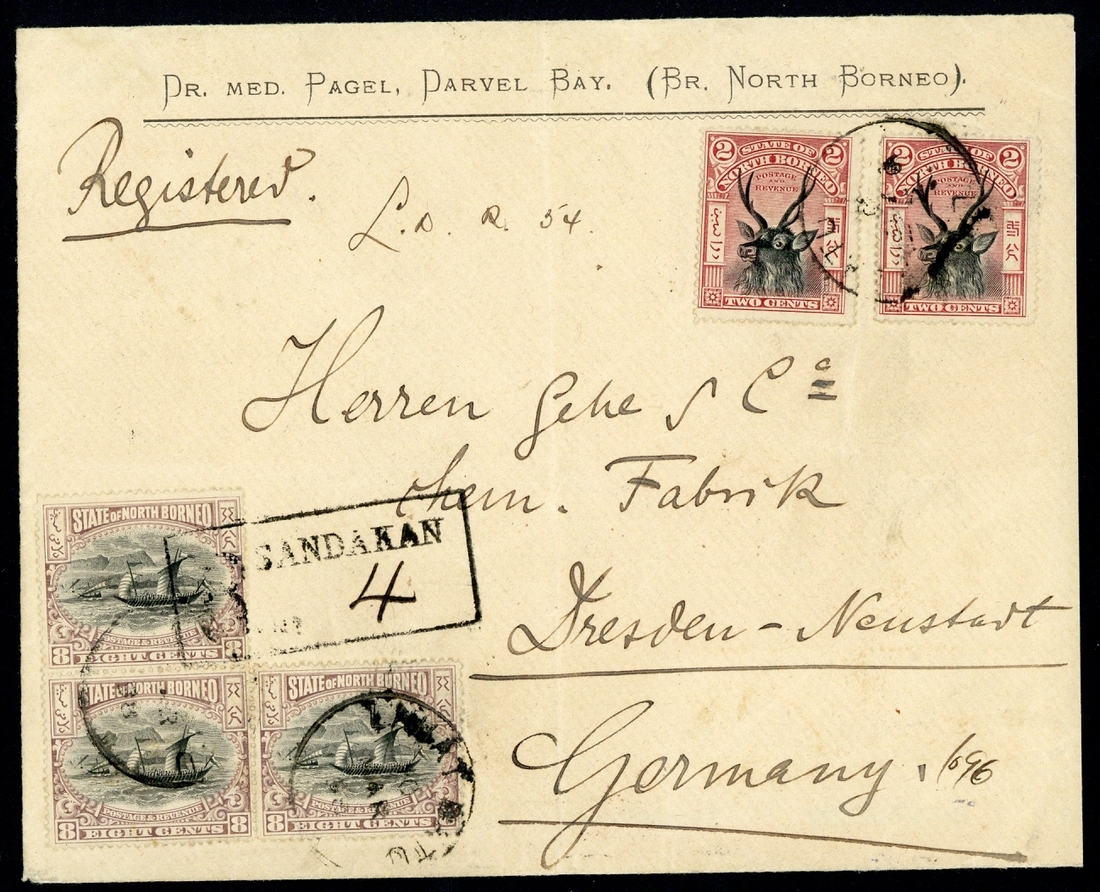 DR. MED. PAGEL, DARVEL BAY. (BR. NORTH BORNEO).
Registered.
L.D. R. 54.
2 STATE OF NORTH BORNEO 2
POSTAGE AND REVENUE
TWO CENTS
2 STATE OF NORTH BORNEO 2
POSTAGE AND REVENUE
TWO CENTS
Herren Gehe & Co
chem. Fabrik
Dresden-Neustadt
Germany.
1696
SANDAKAN
4
STATE OF NORTH BORNEO
POSTAGE & REVENUE
8 EIGHT CENTS 8
STATE OF NORTH BORNEO
POSTAGE & REVENUE
8 EIGHT CENTS 8
STATE OF NORTH BORNEO
POSTAGE & REVENUE
8 EIGHT CENTS 8